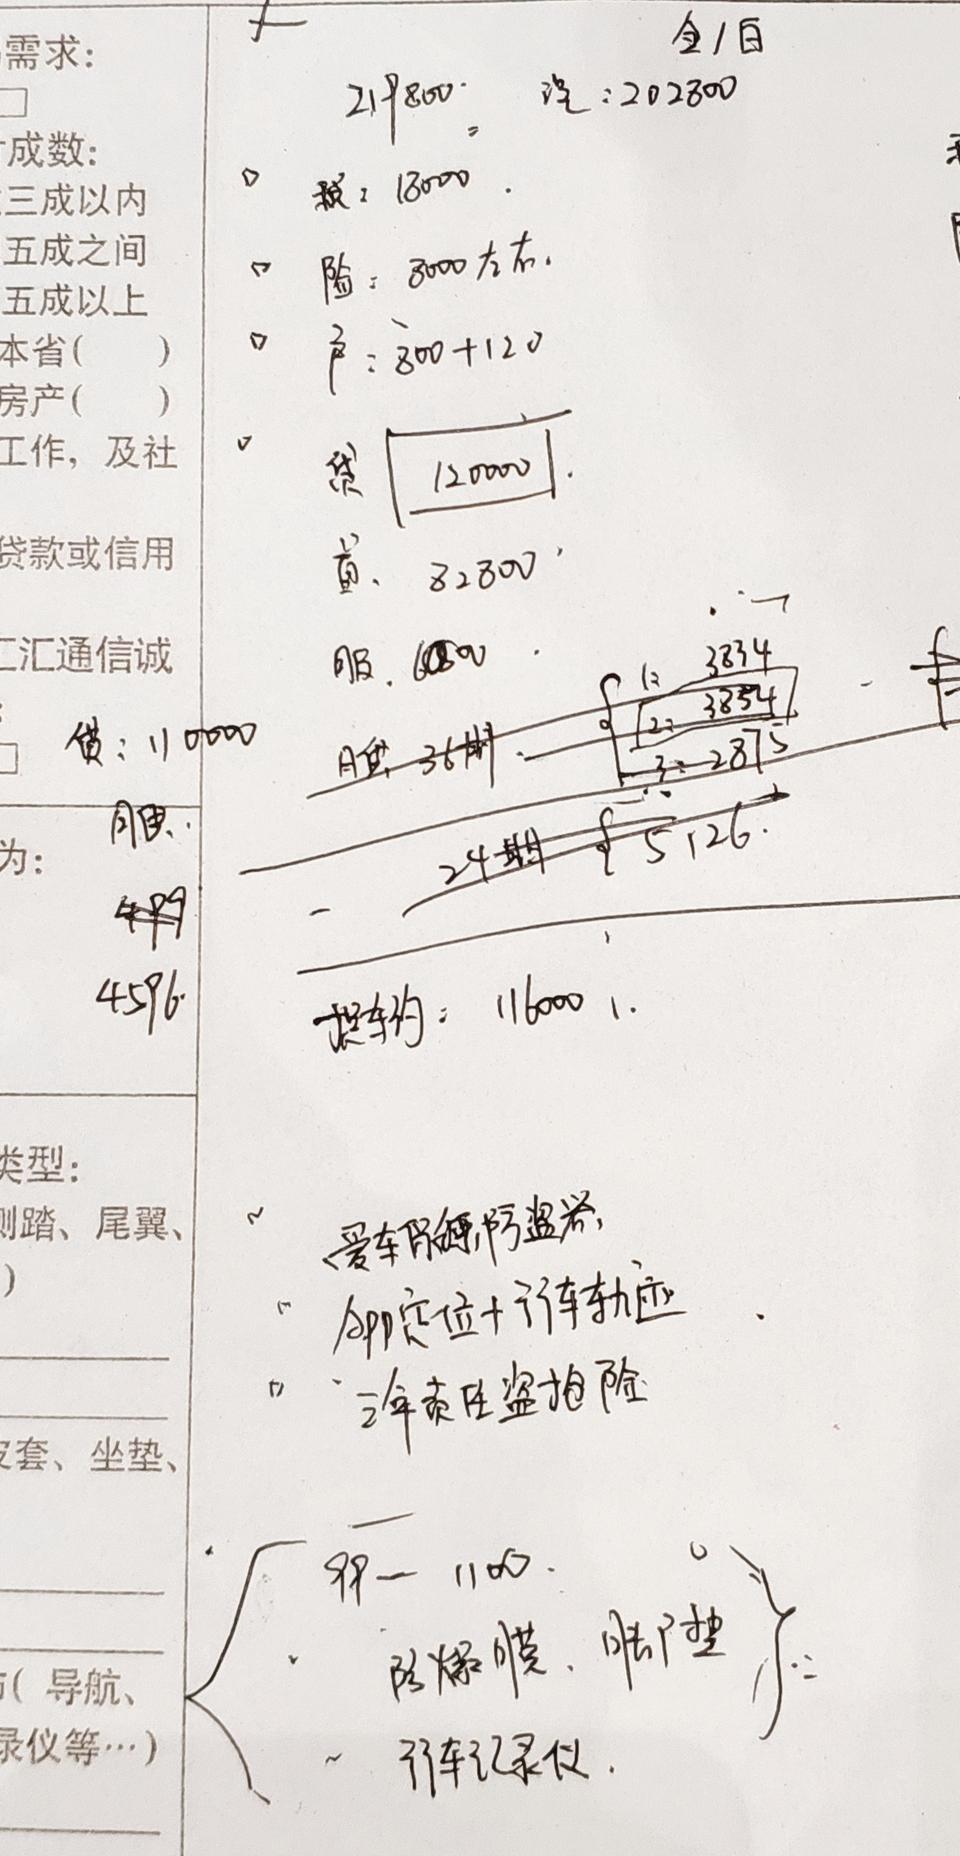 需求:
成数:
三成以内
五成之间
五成以上
本省(  )
房产(  )
工作，及社
贷款或信用
汇汇通信诚
贷: 110000
月供.
499
4596.
为:
类型:
侧踏、尾翼、
)
皮套、坐垫、
( 导航、
录仪等…)
全/白
219800. 汽:202800
税: 18000.
险: 8000左右.
户: 800+120
贷 120000.
首. 82800
服.
月供 36期
1: 3834
2: 3854
3: 2875
24期 5126.
提车约: 116000
爱车保姆,防盗器,
APP定位+行车轨迹
三年责任盗抢险
1100.
防爆膜、脚垫
行车记录仪.